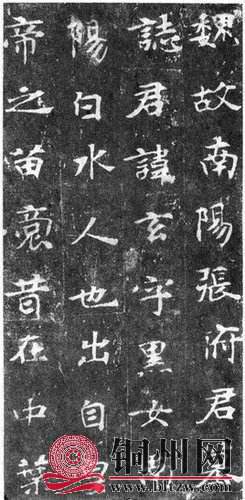 魏故南陽張府君墓
誌君諱玄字黑女南
陽白水人也出自皇
帝之苗裔昔在中葉
铜州网